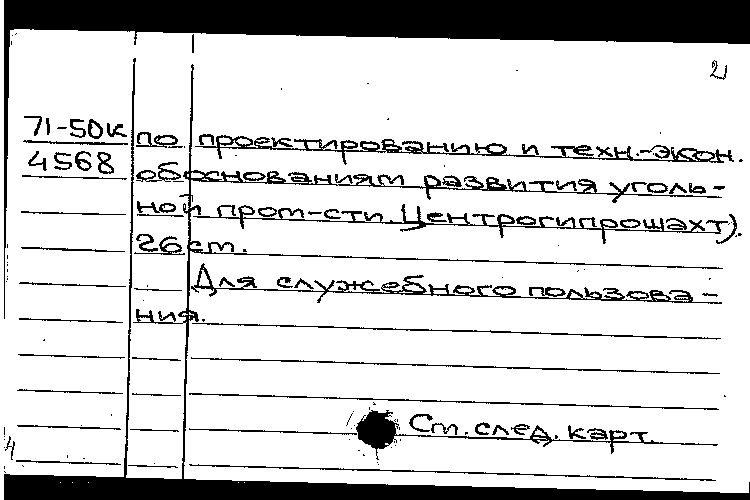 2
71-50к
4568
по проектированию и техн.-экон.
обоснованиям развития уголь-
ной пром-сти. Центрогипрошахт).
26 см.
Для служебного пользова-
ния.
См. след. карт.
4